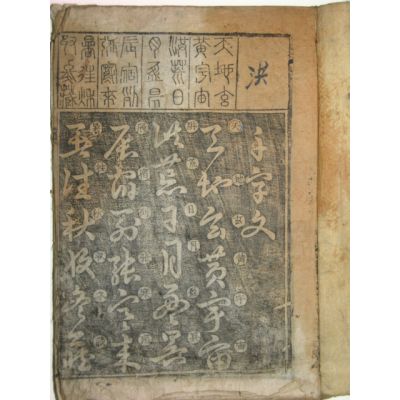 洪
天地玄
黃宇宙
洪荒日
月盈昃
辰宿列
張寒來
暑往秋
收冬藏
千字文
天地玄黃宇宙
洪荒日月盈昃
辰宿列張寒來
暑往秋收冬藏